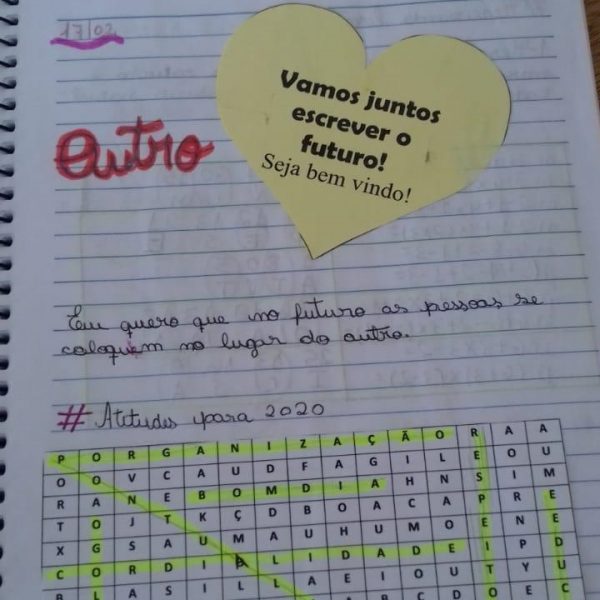 17/02
Outro
Vamos juntos
escrever o
futuro!
Seja bem vindo!
Eu quero que no futuro as pessoas se
coloquem no lugar do outro.
# Atitudes para 2020
P O R G A N I Z A Ç Ã O R A A
O O V C A U D F A G I L E O U
R A N E B O M D I A H N S I M